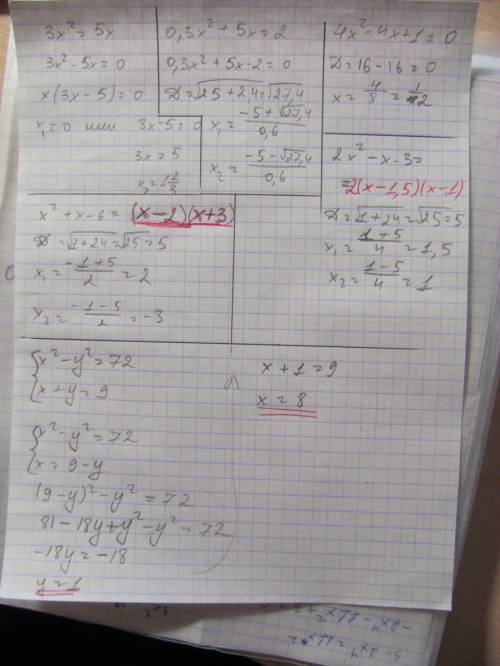 3x² = 5x
3x² - 5x = 0
x(3x - 5) = 0
x₁ = 0 или 3x - 5 = 0
3x = 5
x₂ = 1 2/3
0,3x² + 5x = 2
0,3x² + 5x - 2 = 0
D = √25 + 2,4 = √27,4
x₁ = (-5 + √27,4)/0,6
x₂ = (-5 - √27,4)/0,6
4x² - 4x + 1 = 0
D = 16 - 16 = 0
x = 4/8 = 1/2
2x² - x - 3 =
= 2(x - 1,5)(x - 1)
D = √1 + 24 = √25 = 5
x₁ = (1 + 5)/4 = 1,5
x₂ = (1 - 5)/4 = 1
x² + x - 6 = (x - 2)(x + 3)
D = √1 + 24 = √25 = 5
x₁ = (-1 + 5)/2 = 2
x₂ = (-1 - 5)/2 = -3
{x² - y² = 72
x + y = 9
{x² - y² = 72
x = 9 - y
(9 - y)² - y² = 72
81 - 18y + y² - y² = 72
-18y = -18
y = 1
x + 1 = 9
x = 8